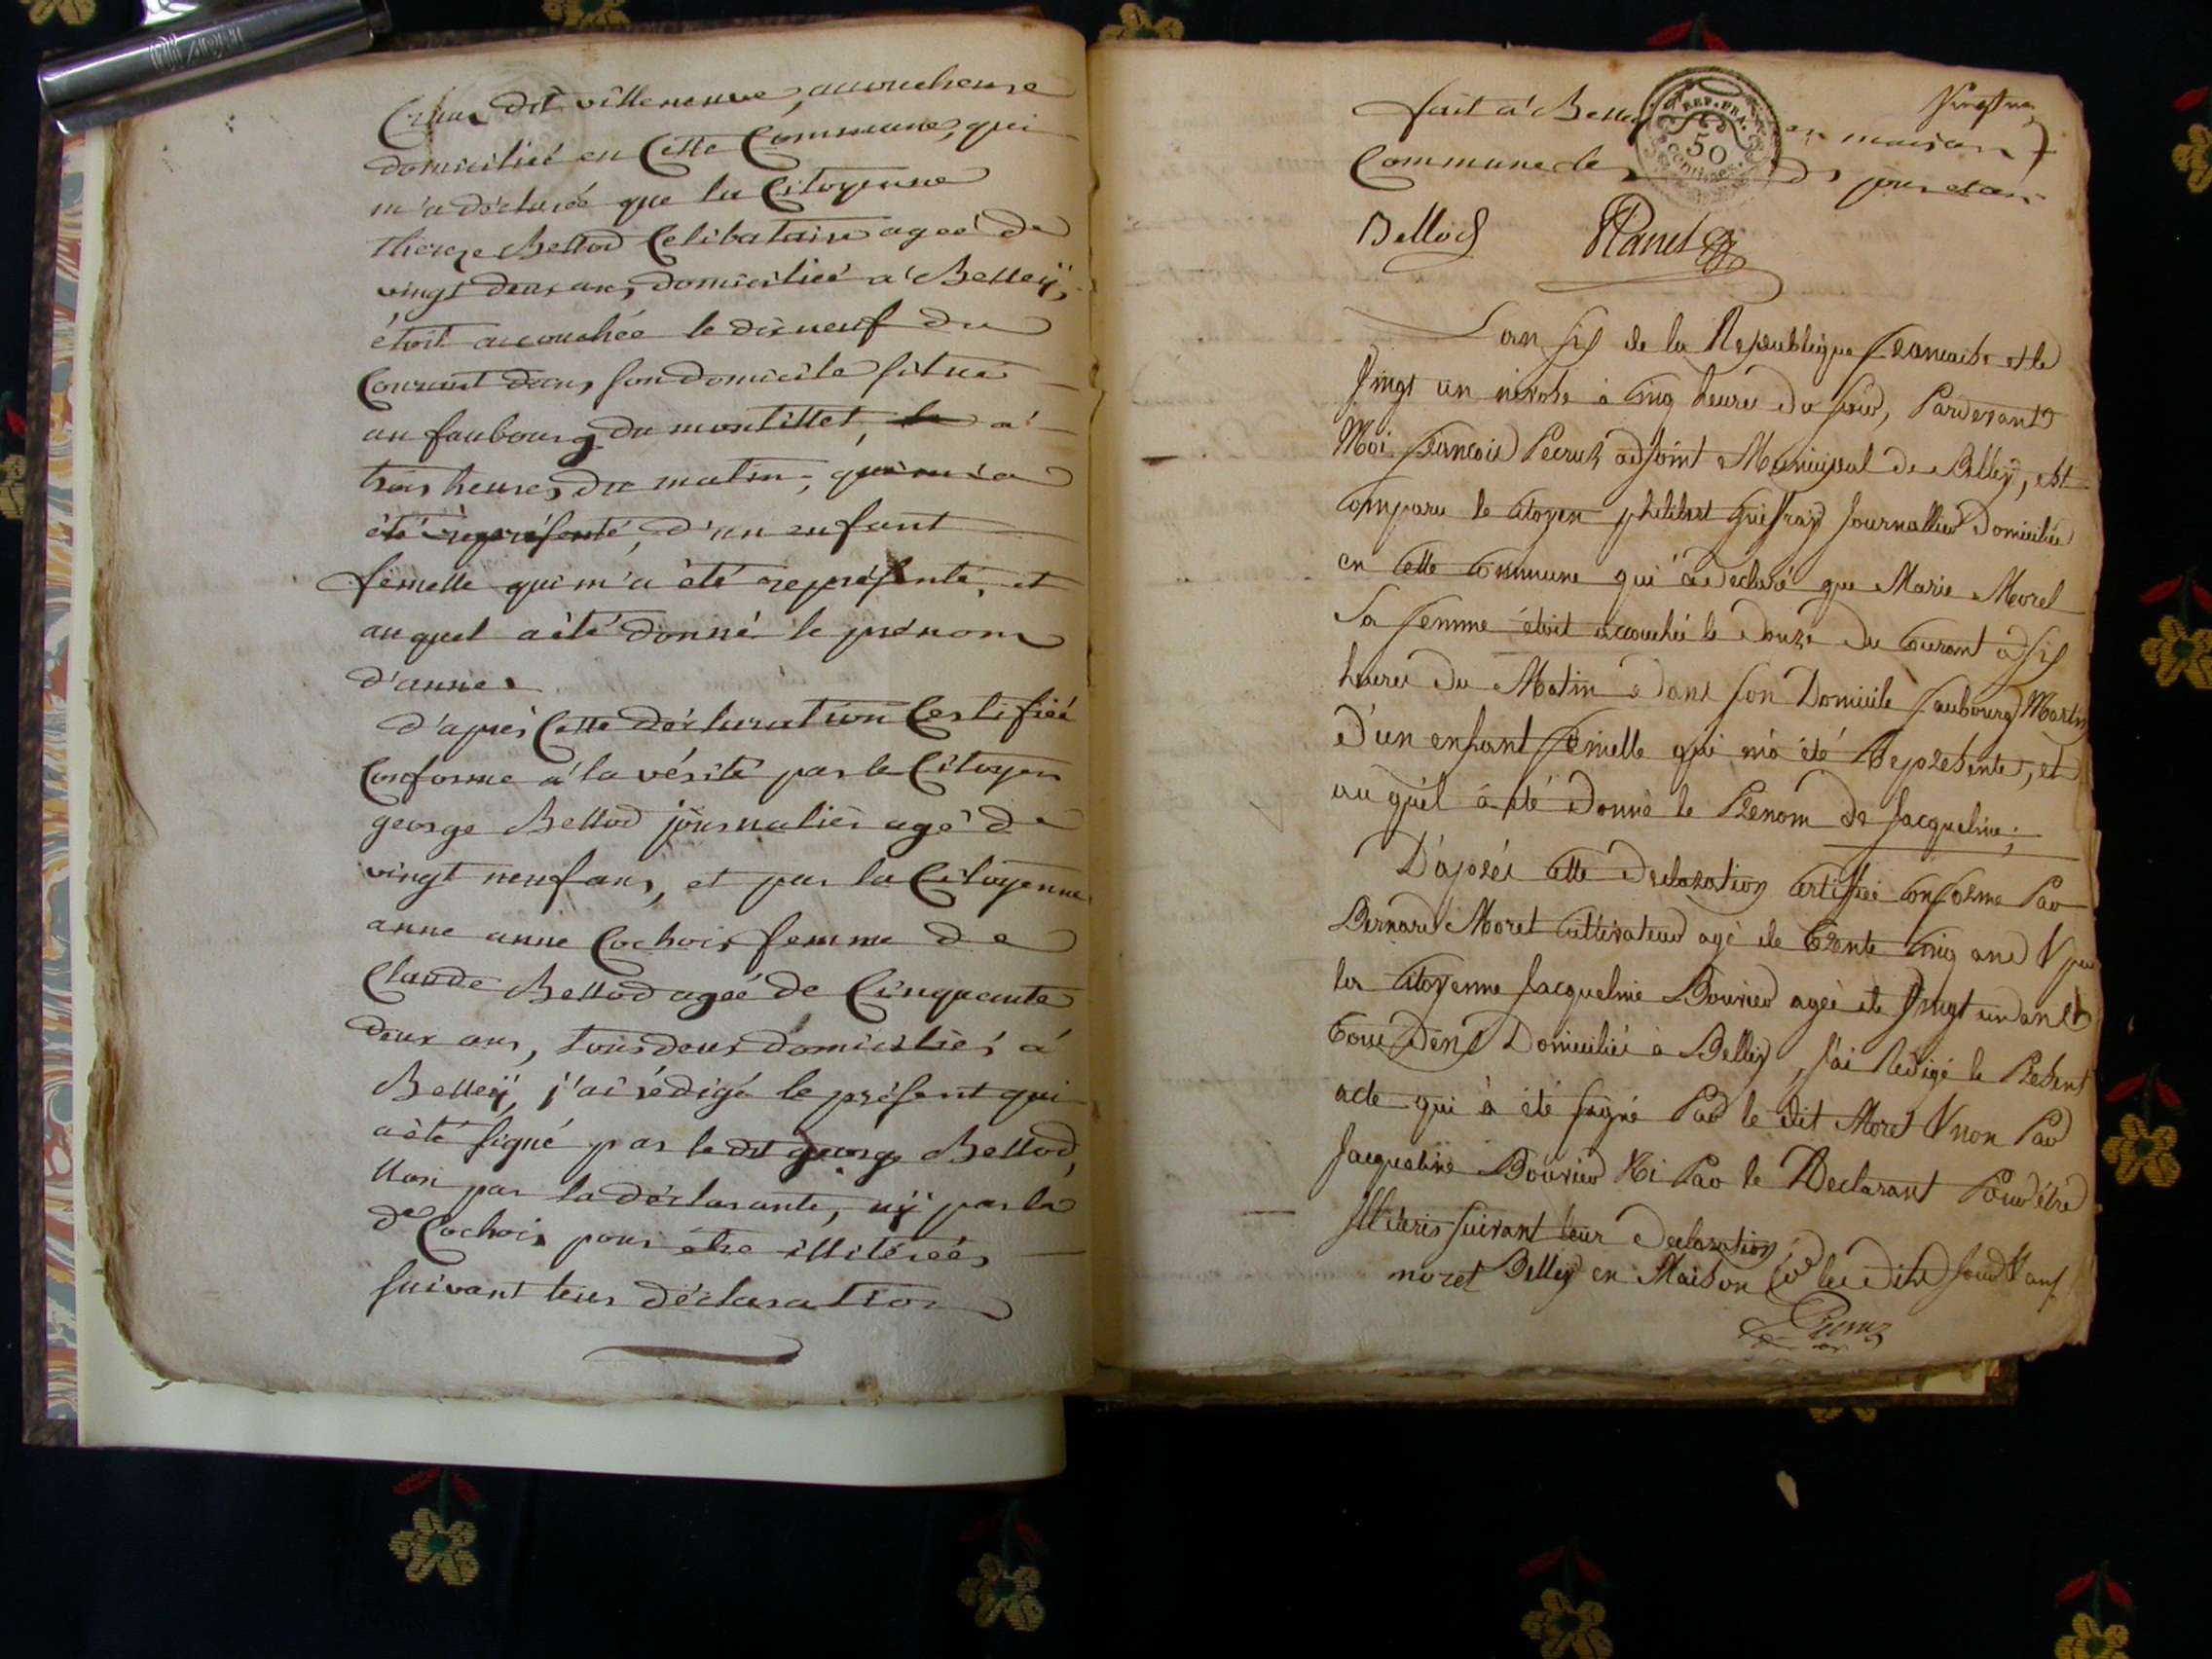 dit villeneuve, accoucheuse
domiciliée en Cette Commune, qui
m'a déclaré que la Citoyenne
Thereze Bellod Celibataire ageé de
vingt deux ans, domiciliée a Belleÿ,
étoit accouchée le dixneuf du
Courant dans son domicile situé
au faubourg du montillet, a
trois heures du matin, qui m'a
été représenté, d'un enfant
femelle qui m'a été représenté, et
auquel a été donné le prénom
d'anne.
d'après Cette déclaration Certifiée
Conforme a la vérité par le Citoyen
george Bellod journalier agé de
vingt neuf ans, et par la Citoyenne
anne anne Cochois femme de
Claude Bellod ageé de Cinquante
deux ans, tous deux domiciliés a
Belleÿ, j'ai rédigé le présent qui
a été signé par le dit george Bellod,
Non par la déclarante, nÿ par la
de Cochois pour être illitérées
suivant leur déclaration
fait a Belleÿ en maison
Commune les jour et an
Bellod
REP. FRA.
50
centimes
L'an six de la Republique francaise et le
vingt un nivose à cinq heures du soir, Pardevant
Moi francois Pecruz adjoint Municipal de Belleÿ, est
comparu le citoyen philibert journallier Domicilié
en cette commune qui a declaré que Marie Morel
sa femme étoit accouchée le Douze du courant a six
heures du Matin dans son Domicile faubourg Martin
D'un enfant femelle qui m'a été Representé, et
auquel a été donné le Prenom de Jacqueline;
D'après cette declaration certiffiée conforme Par
Bernard Moret cultivateur agé de trente cinq ans & par
la citoyenne Jacqueline Bouvier ageé de vingt un ans
tous Deux Domiciliés a Belleÿ, j'ai Redigé le Présent
acte qui a été signé Par le dit Moret & non Par
Jacqueline Bouvier Ni Par le Declarant Pour être
Illiteris suivant leur Declaration;
moret Belleÿ en Maison les dits jour & an